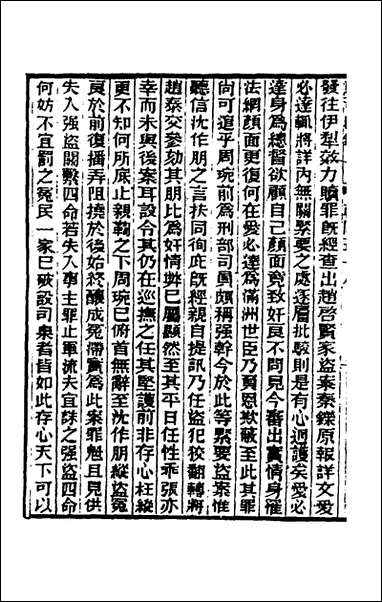 發往伊犁效力贖罪旣經查出趙啓賢家盜案秦鑅原報詳文愛
必達輒將詳內無關緊要之處逐層批駁則是有心迴護矣愛必
達身爲總督欲顧自己顏面竟致奸良不問見今審出實情身罹
法網顏面更復何在愛必達爲滿洲世臣乃負恩欺蔽至此其罪
尚可逭乎周琬前爲刑部司員頗稱强幹今於此等緊要盜案惟
聽信沈作朋之言扶同徇庇旣經親自提訊乃任盜犯狡翻轉將
趙泰交參劾其朋比爲奸情弊已屬顯然至其平日任性乖張亦
幸而未與後案耳設令其仍在巡撫之任其堅護前非存心枉縱
更不知何所底止親鞫之下周琬已俯首無辭至沈作朋縱盜冤
良於前復播弄阻撓於後始終釀成冤滯實爲此案罪魁且見供
失入强盜關繫四命若失入事主罪止軍流夫宜誅之强盜四命
何妨不宜罰之冤民一家已破設司臬者皆如此存心天下可以